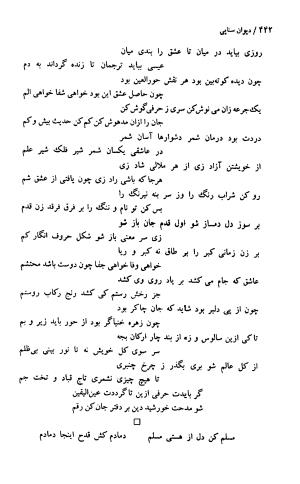 ۴۴۲ / دیوان سنایی
روزی بباید در میان تا عشق را بندی میان
عیسی بباید ترجمان تا زنده گرداند به دم
چون دیده کوته‌بین بود هر نقش حورالعین بود
چون حاصل عشق این بود خواهی شفا خواهی الم
یک‌جرعه زان می نوش‌کن سری ز حرفی‌گوش‌کن
جان را ازان مدهوش‌کن کم‌کن حدیث بیش و کم
دردت بود درمان شمر دشوارها آسان شمر
در عاشقی یکسان شمر شیر فلک شیر علم
از خویشتن آزاد زی از هر ملالی شاد زی
هرجا که باشی راد زی چون یافتی از عشق شم
رو کن شراب رنگ را وز سر بنه نیرنگ را
بس کن تو نام و ننگ را بر فرق فرقد زن قدم
بر سوز دل دمساز شو اول قدم جان باز شو
زی سر معنی باز شو شکل حروف انگار کم
بر زن زمانی کبر را بر طاق نه کبر و ریا
خواهی وفا خواهی جفا چون دوست باشد محتشم
عاشق که جام می کشد بر یاد روی وی کشد
جز رخش رستم کی کشد رنج رکاب روستم
چون از پی دلبر بود شاید که جان چاکر بود
چون زهره خنیاگر بود از حور باید زیر و بم
تا کی ازین سالوس و زه از بند چار ارکان بجه
سر سوی کل خویش نه تا نور بینی بی‌ظلم
از کل عالم شو بری بگذر ز چرخ چنبری
تا هیچ چیزی نشمری تاج قباد و تخت جم
گر بایدت حرفی ازین تا گرددت عین‌الیقین
شو مدحت خورشید دین بر دفتر جان‌کن رقم
مسلم کن دل از هستی مسلم دمادم کش قدح اینجا دمادم